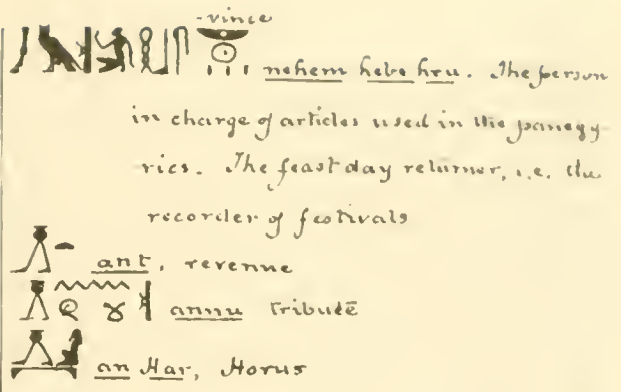 -vince
nehem hebe hru. The person
in charge of articles used in the panegy
rics. The feast day returner, i.e. the
recorder of festivals
ant, revenue
annu tribute
an Har, Horus